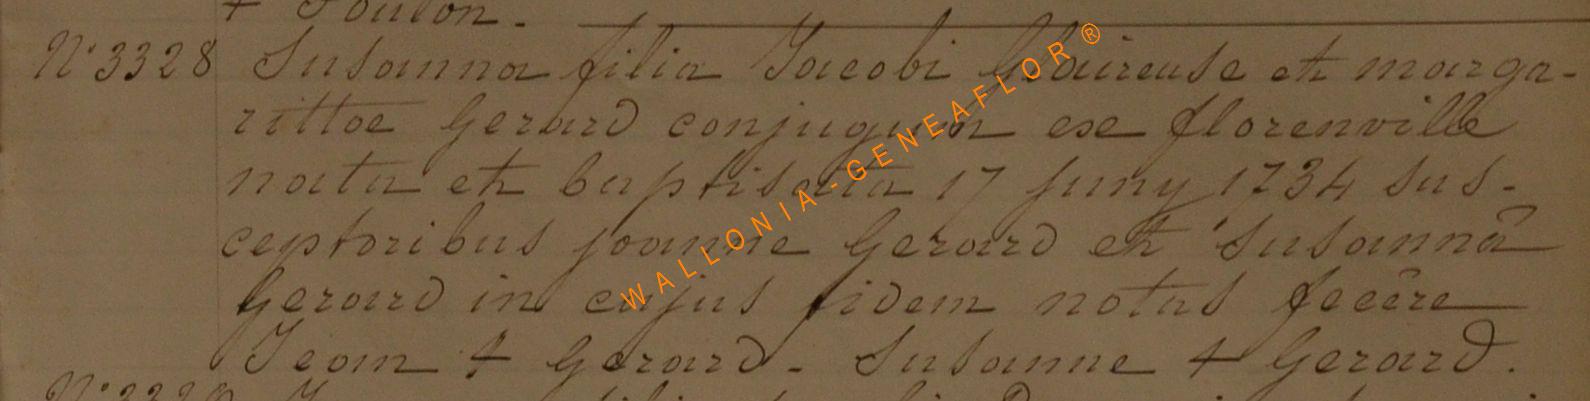 + Toulon.
N° 3328 Susanna filia Jacobi et marga-
rittae Gerard conjugum ex florenville
nata et baptisata 17 Juny 1734 sus-
ceptoribus joanne Gerard et Susannâ
Gerard in cujus fidem notas fecêre
Jean + Gerard. Susanne + Gerard.
WALLONIA-GENEAFLOR®